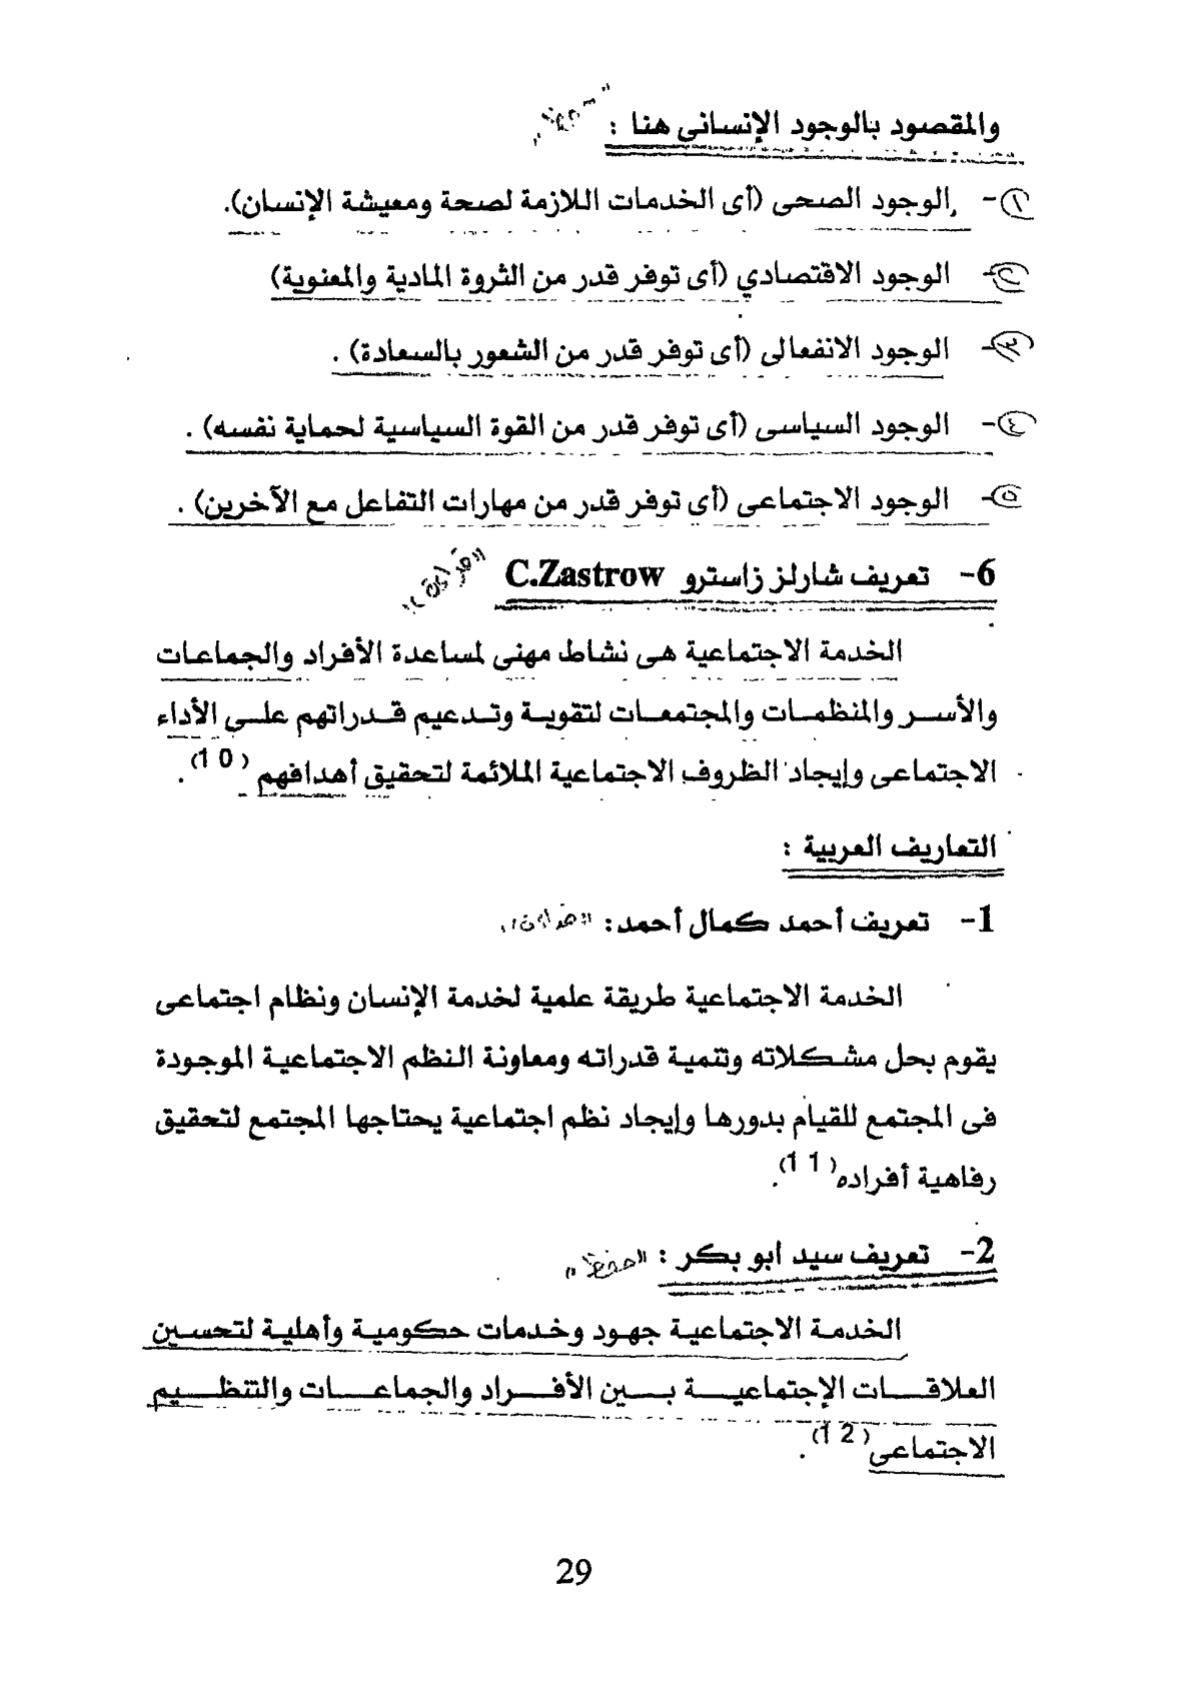 والمقصود بالوجود الإنسانى هنا :
١- الوجود الصحى (أى الخدمات اللازمة لصحة ومعيشة الإنسان).
٢- الوجود الاقتصادي (أى توفر قدر من الثروة المادية والمعنوية)
٣- الوجود الانفعالى (أى توفر قدر من الشعور بالسعادة) .
٤- الوجود السياسى (أى توفر قدر من القوة السياسية لحماية نفسه) .
٥- الوجود الاجتماعى (أى توفر قدر من مهارات التفاعل مع الآخرين) .
6- تعريف شارلز زاسترو C.Zastrow "قراءة"
الخدمة الاجتماعية هى نشاط مهنى لمساعدة الأفراد والجماعات
والأسر والمنظمات والمجتمعات لتقوية وتدعيم قدراتهم على الأداء
الاجتماعى وإيجاد الظروف الاجتماعية الملائمة لتحقيق أهدافهم (10) .
التعاريف العربية :
1- تعريف أحمد كمال أحمد: "قراءة"
الخدمة الاجتماعية طريقة علمية لخدمة الإنسان ونظام اجتماعى
يقوم بحل مشكلاته وتنمية قدراته ومعاونة النظم الاجتماعية الموجودة
فى المجتمع للقيام بدورها وإيجاد نظم اجتماعية يحتاجها المجتمع لتحقيق
رفاهية أفراده(11).
2- تعريف سيد ابو بكر : "حفظ"
الخدمة الاجتماعية جهود وخدمات حكومية وأهلية لتحسين
العلاقات الإجتماعية بين الأفراد والجماعات والتنظيم
الاجتماعى(12).
29